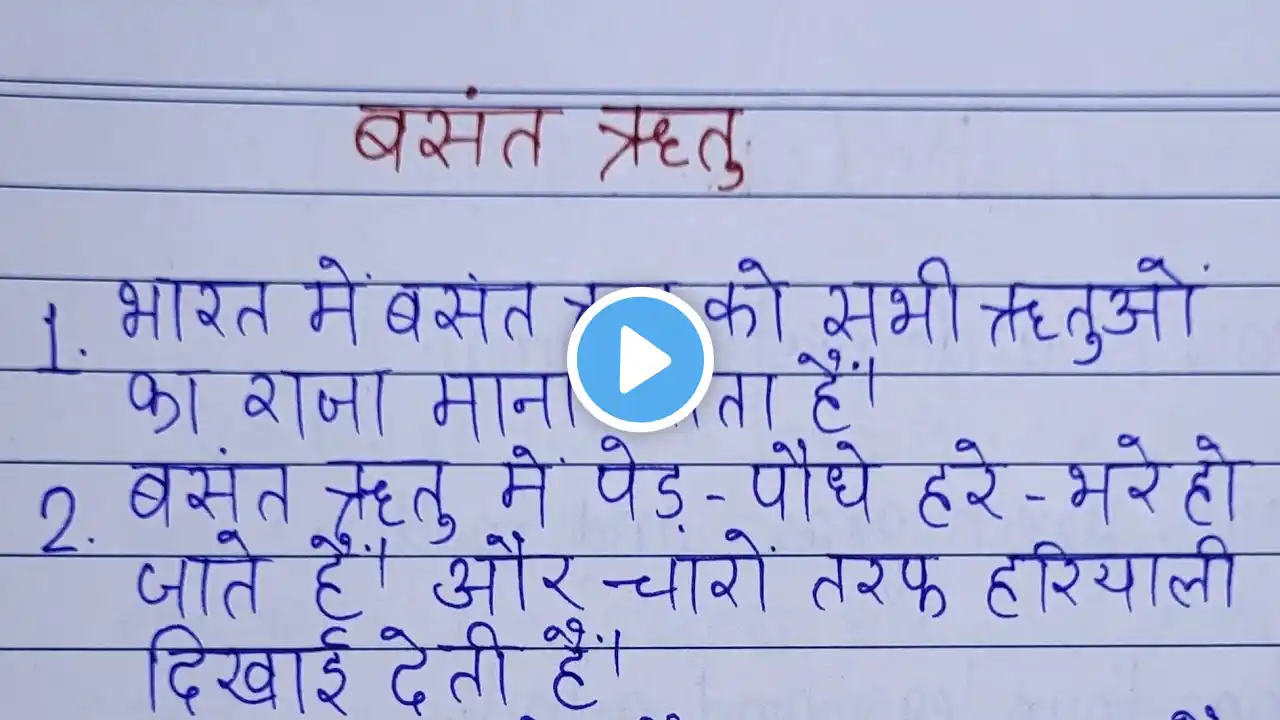 बसंत ऋतु
1. भारत में बसंत को सभी ऋतुओं
का राजा माना है।
2. बसंत ऋतु में पेड़ - पौधे हरे - भरे हो
जाते हैं। और चारों तरफ हरियाली
दिखाई देती हैं।